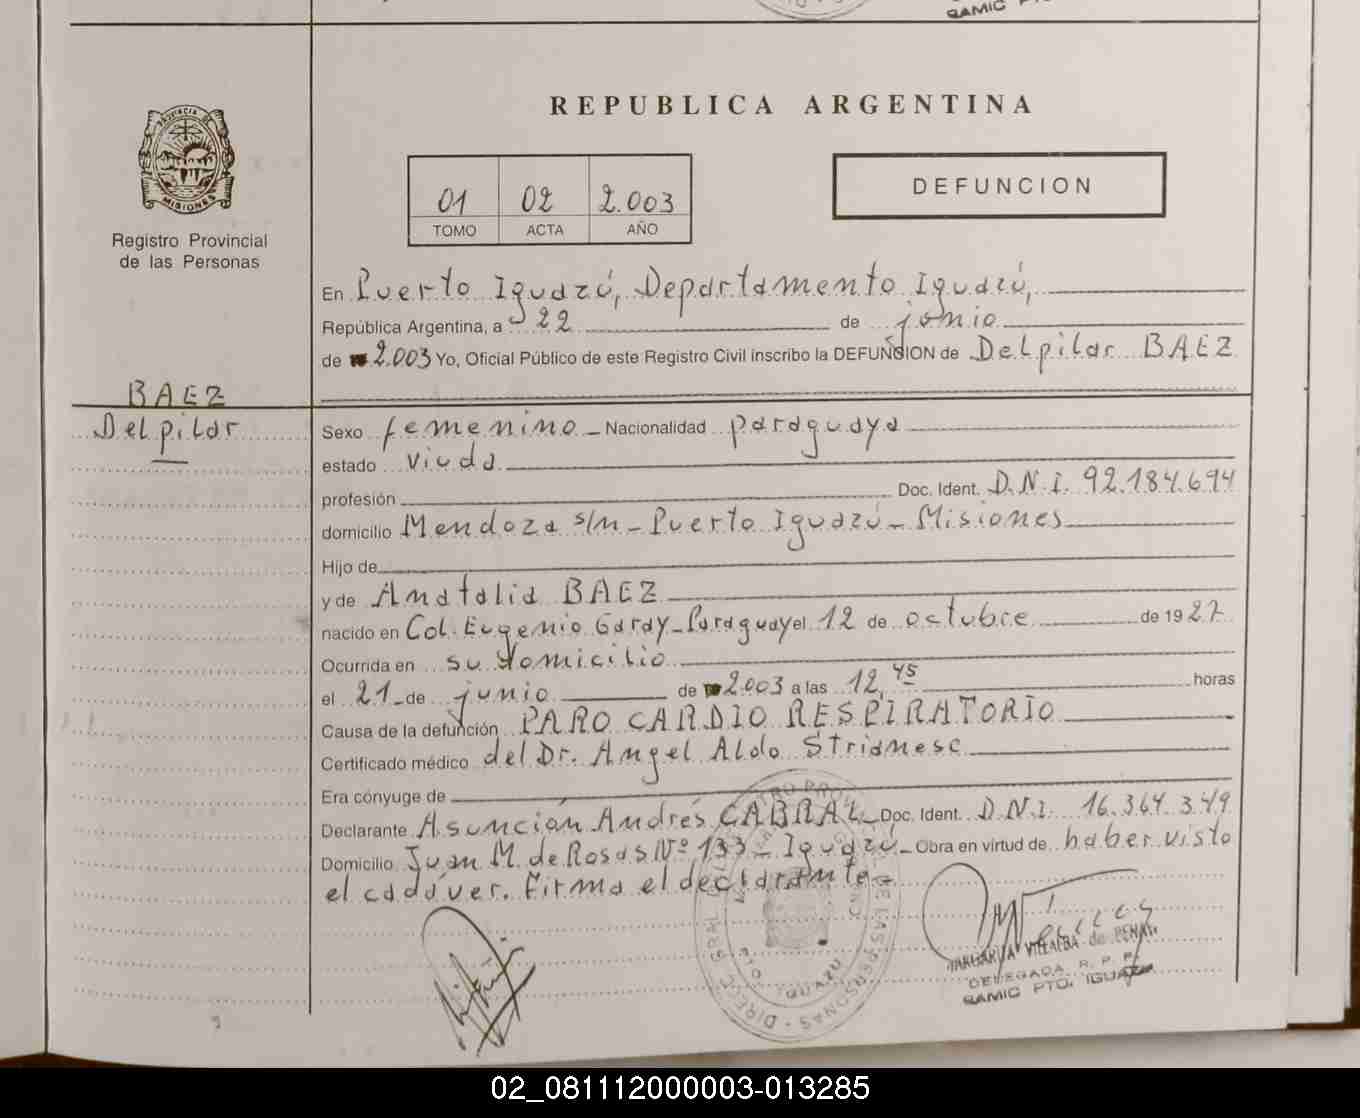 SAMIC PTO.
PROVINCIA DE
MISIONES
Registro Provincial
de las Personas
REPUBLICA ARGENTINA
01 02 2.003
TOMO ACTA AÑO
DEFUNCION
En Puerto Iguazú, Departamento Iguazú,
República Argentina, a 22 de junio
de 2.003 Yo, Oficial Público de este Registro Civil inscribo la DEFUNSION de Delpilar BAEZ
BAEZ
Delpilar
Sexo femenino Nacionalidad paraguaya
estado viuda
profesión Doc. Ident. D.N.I. 92.184.694
domicilio Mendoza s/n - Puerto Iguazú - Misiones
Hijo de
y de Anatalia BAEZ
nacido en Col. Eugenio Garay - Paraguay el 12 de octubre de 1927
Ocurrida en su domicilio
el 21 de junio de 2.003 a las 12,45 horas
Causa de la defunción PARO CARDIO RESPIRATORIO
Certificado médico del Dr. Angel Aldo Strianesc
Era cónyuge de
Declarante Asunción Andrés CABRAL Doc. Ident. D.N.I. 16.364.349
Domicilio Juan M. de Rosas Nº 133 - Iguazú - Obra en virtud de haber visto
el cadáver. Firma el declarante -
DE LAS PERSONAS - DIREC. GRAL.
PTO. IGUAZU
MARGARITA VILLALBA de PENAY
DELEGADA R. P. P.
SAMIC PTO. IGUAZU
02_081112000003-013285